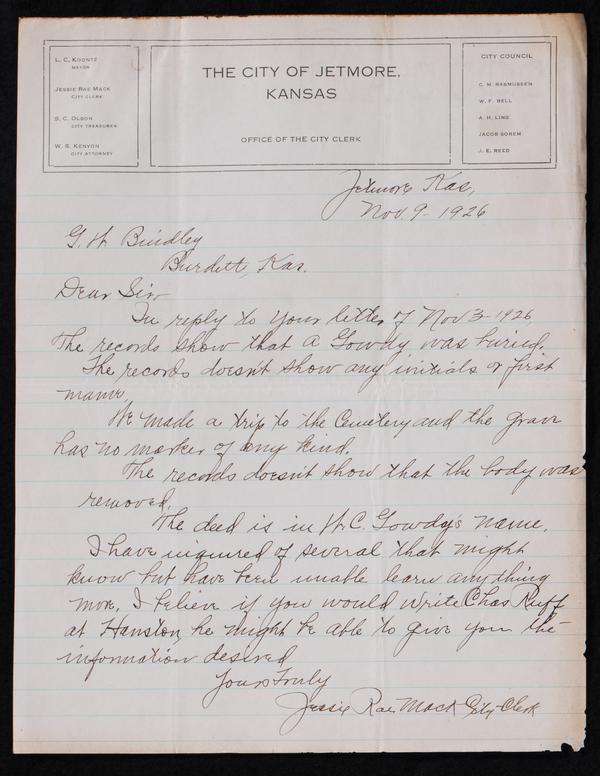 L. C. Koontz
MAYOR
Jessie Rae Mack
CITY CLERK
S. C. Olson
CITY TREASURER
W. S. Kenyon
CITY ATTORNEY
THE CITY OF JETMORE,
KANSAS
OFFICE OF THE CITY CLERK
CITY COUNCIL
C. M. RASMUSSEN
W. F. BELL
A. H. LING
JACOB SOREM
J. E. REED
Jetmore Kas,
Nov 9 - 1926
G. W Bindley
Burdett, Kas.
Dear Sir
In reply to your letter of Nov 3 - 1926,
The records show that a Gowdy was buried.
The records doesn't show any initials or first
name.
We made a trip to the Cemetery and the grave
has no marker of any kind.
The records doesn't show that the body was
removed.
The deed is in H. C. Gowdy's name.
I have inquired of several that might
know but have been unable learn anything
more. I believe if you would write Chas Ruff
at Hanston he might be able to give you the
information desired
Yours Truly
Jessie Rae Mack City Clerk